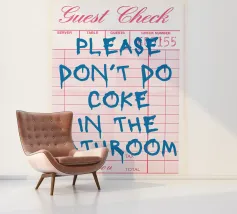 Guest Check
SERVER TABLE GUESTS CHECK NUMBER
155
PLEASE
DON'T DO
COKE
IN THE
THROOM
TOTAL